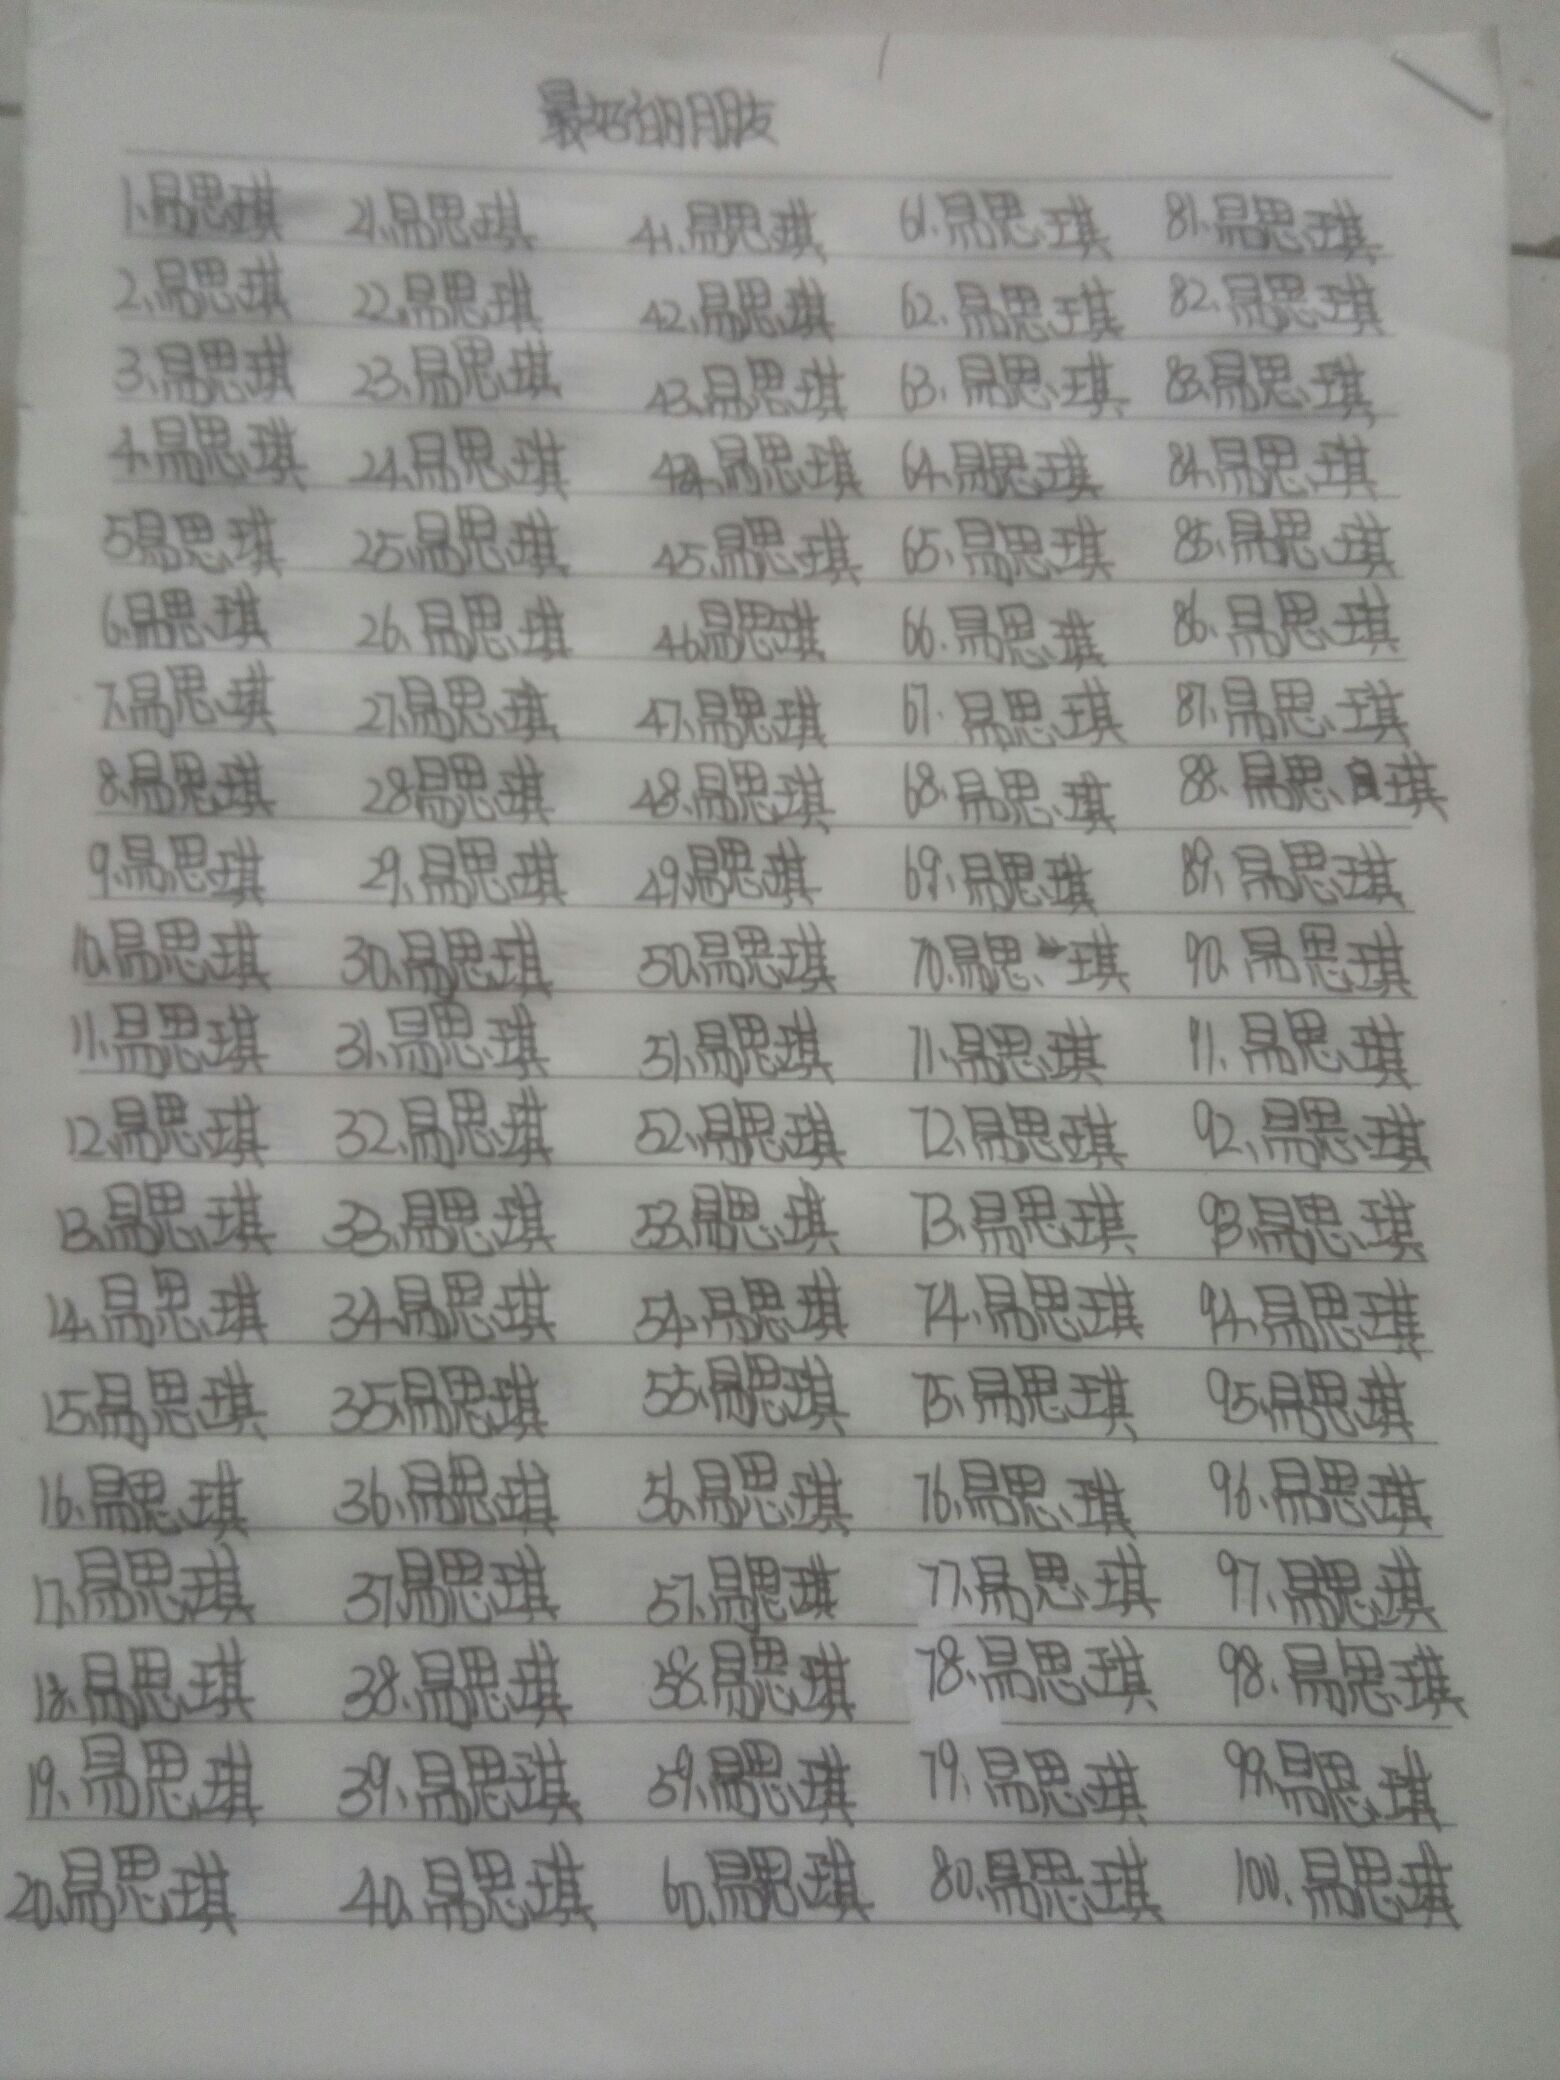 最好的朋友
1.易思琪 21.易思琪 41.易思琪 61.易思琪 81.易思琪
2.易思琪 22.易思琪 42.易思琪 62.易思琪 82.易思琪
3.易思琪 23.易思琪 43.易思琪 63.易思琪 83.易思琪
4.易思琪 24.易思琪 44.易思琪 64.易思琪 84.易思琪
5易思琪 25.易思琪 45.易思琪 65.易思琪 85.易思琪
6.易思琪 26.易思琪 46.易思琪 66.易思琪 86.易思琪
7.易思琪 27.易思琪 47.易思琪 67.易思琪 87.易思琪
8.易思琪 28易思琪 48.易思琪 68.易思琪 88.易思琪
9.易思琪 29.易思琪 49.易思琪 69.易思琪 89.易思琪
10.易思琪 30.易思琪 50.易思琪 70.易思琪 90.易思琪
11.易思琪 31.易思琪 51.易思琪 71.易思琪 91.易思琪
12.易思琪 32.易思琪 52.易思琪 72.易思琪 92.易思琪
13.易思琪 33.易思琪 53.易思琪 73.易思琪 93.易思琪
14.易思琪 34.易思琪 54.易思琪 74.易思琪 94.易思琪
15.易思琪 35.易思琪 55.易思琪 75.易思琪 95.易思琪
16.易思琪 36.易思琪 56.易思琪 76.易思琪 96.易思琪
17.易思琪 37.易思琪 57.易思琪 77.易思琪 97.易思琪
18.易思琪 38.易思琪 58.易思琪 78.易思琪 98.易思琪
19.易思琪 39.易思琪 59.易思琪 79.易思琪 99.易思琪
20.易思琪 40.易思琪 60.易思琪 80.易思琪 100.易思琪